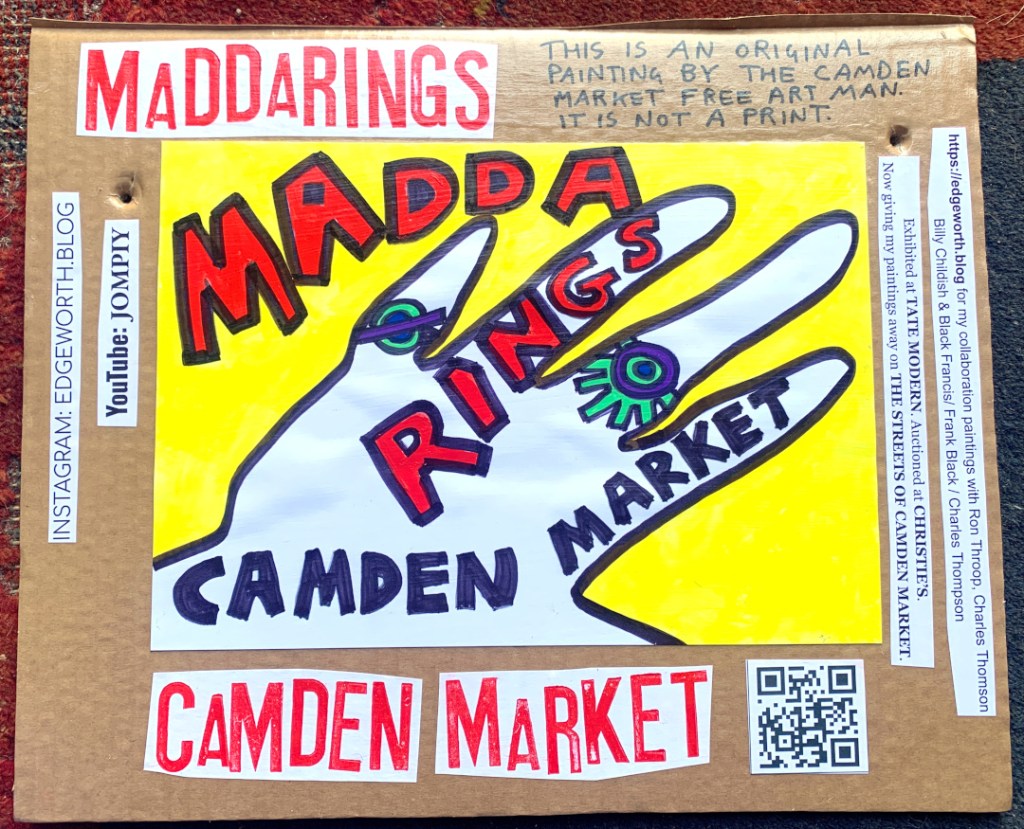 MADDARINGS
THIS IS AN ORIGINAL
PAINTING BY THE CAMDEN
MARKET FREE ART MAN.
IT IS NOT A PRINT.
INSTAGRAM: EDGEWORTH.BLOG
YouTube: JOMPIY
MADDA
RINGS
CAMDEN
MARKET
https://edgeworth.blog for my collaboration paintings with Ron Throop, Charles Thomson
Billy Childish & Black Francis/ Frank Black / Charles Thompson
Exhibited at TATE MODERN. Auctioned at CHRISTIE'S.
Now giving my paintings away on THE STREETS OF CAMDEN MARKET.
CAMDEN MARKET